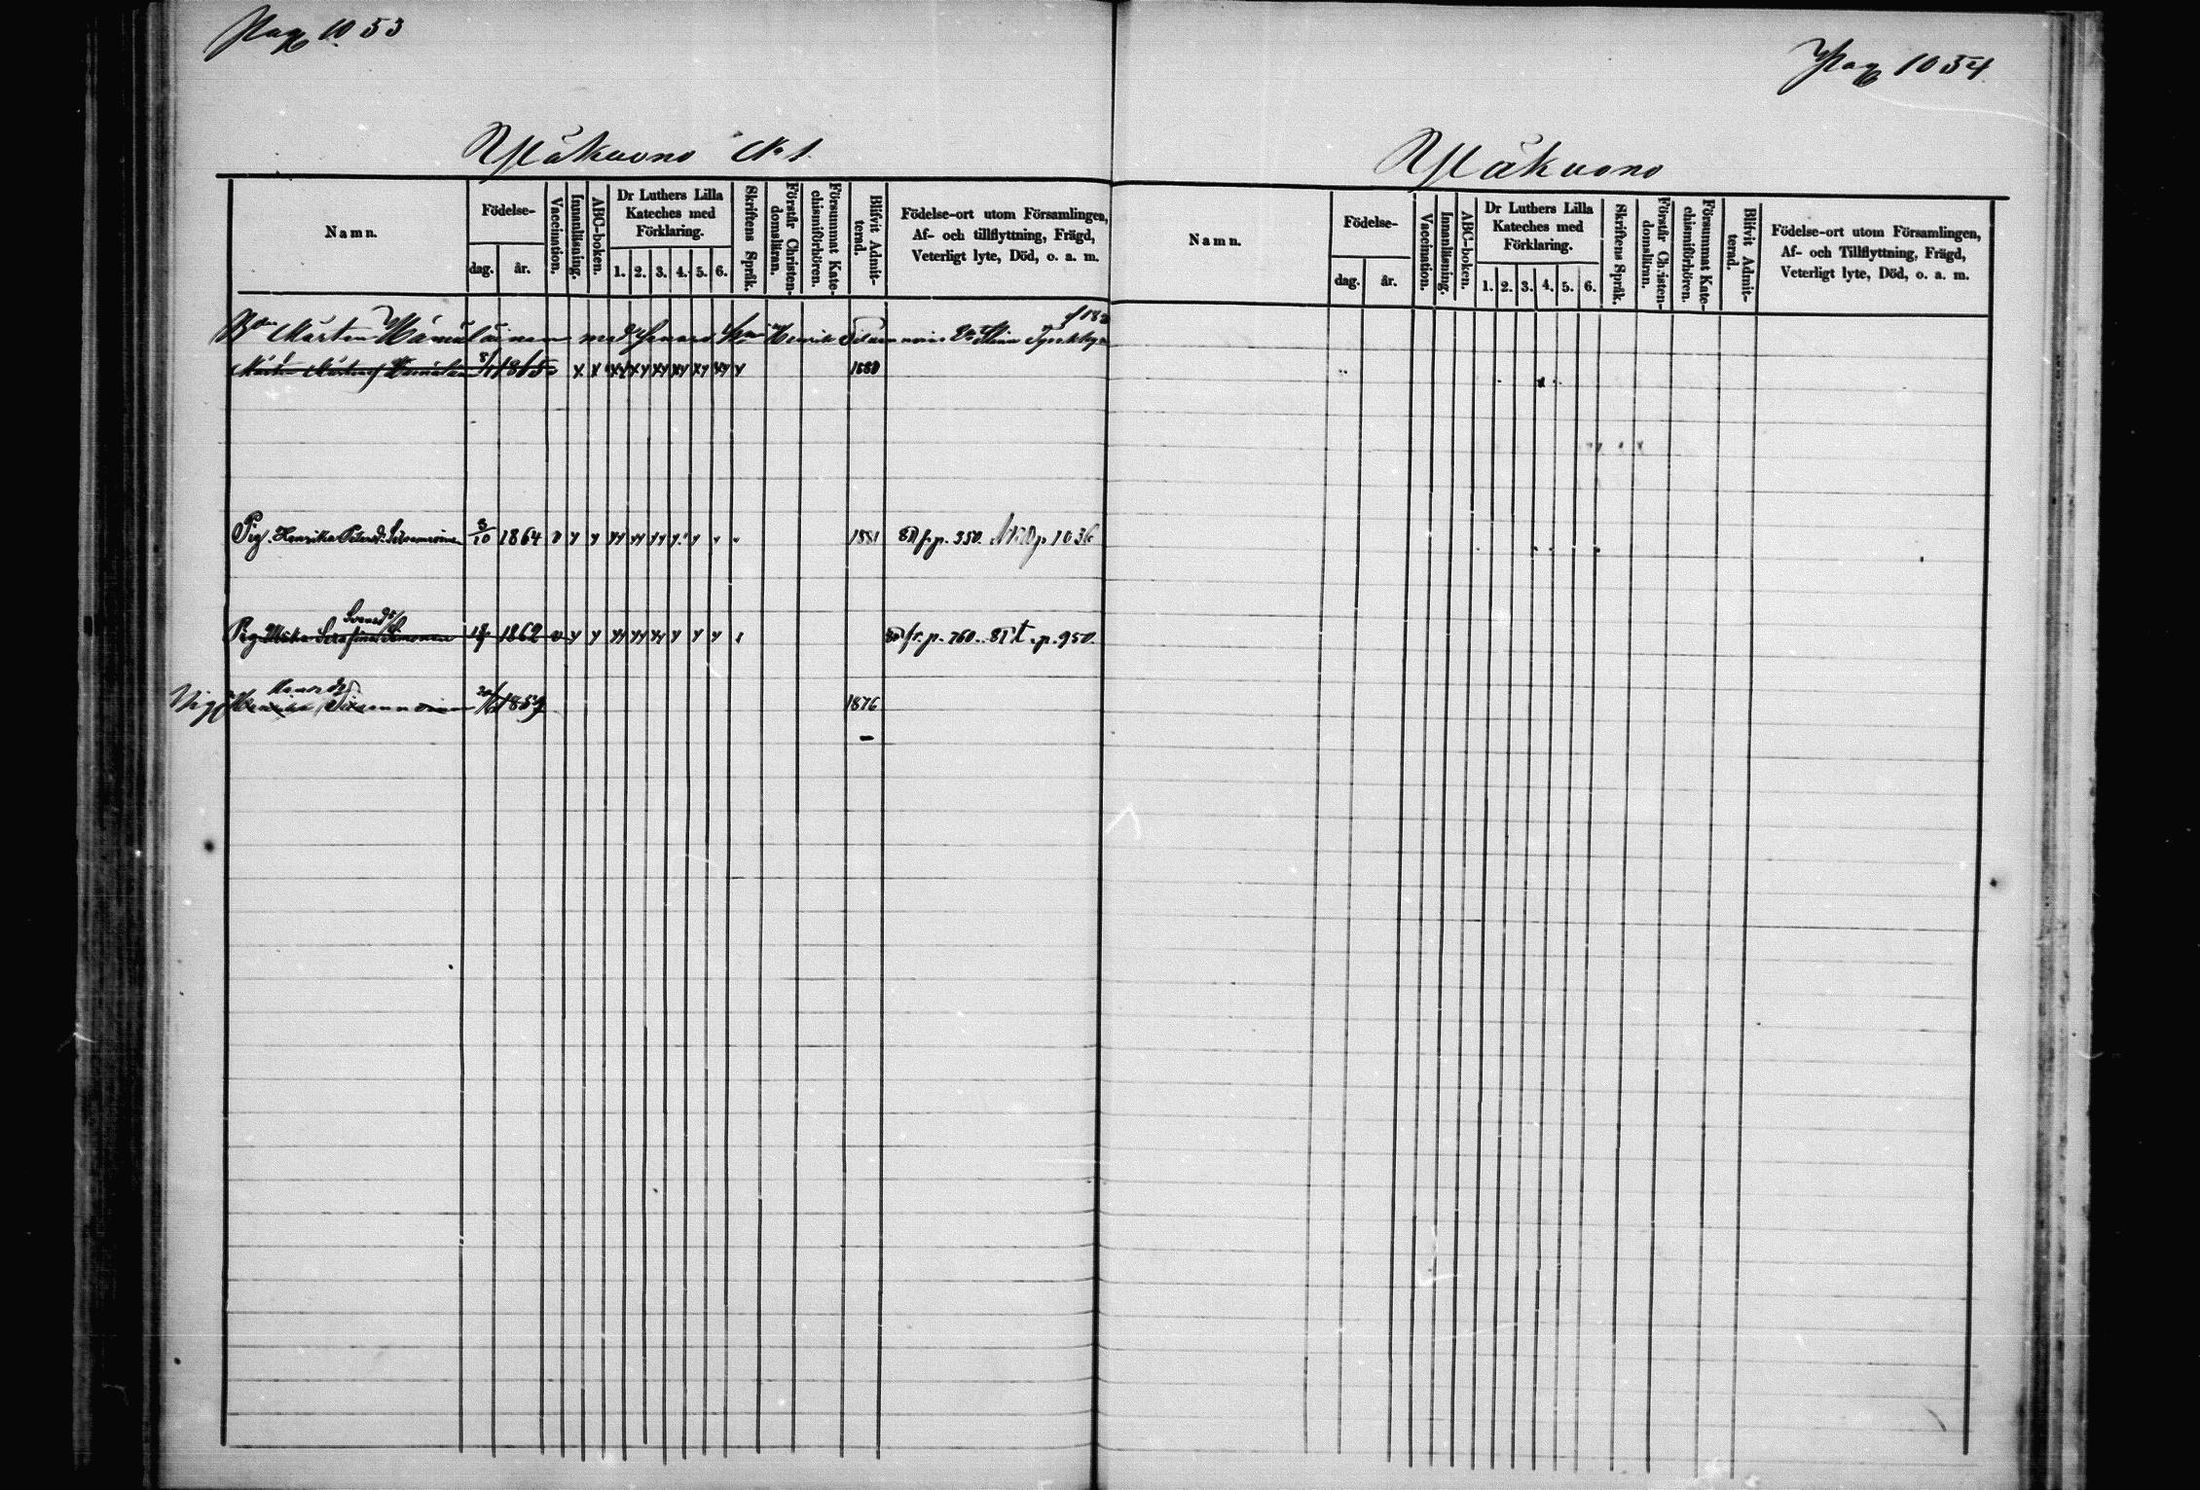 Pag 1053
Mäkuono No 1.
Namn.
Födelse-
dag.
år.
Vaccination.
Innanläsning.
ABC-boken.
Dr Luthers Lilla
Kateches med
Förklaring.
1. 2. 3. 4. 5. 6.
Skriftens Språk.
Förstår Christen-
domsläran.
Försummat Kate-
chismiförhören.
Blifvit Admit-
terad.
Födelse-ort utom Församlingen,
Af- och tillflyttning, Frägd,
Veterligt lyte, Död, o. a. m.
Mårten Hämäläinen med Henrik
Mårten 1865 x x xy xy xy xy xy xy y 1880
Pig. Henrika Petersd. 3/10 1864 v y y yy yy yy y y 1881 80 fr. p. 350. p 1036
Pig Ulrika Serafina Simonen 1862 v y y yy yy yy y y y 80 fr. p. 760. 81 t. p. 950.
Pig 1859 1876
Pag 1054
Mäkuono
Namn.
Födelse-
dag.
år.
Vaccination.
Innanläsning.
ABC-boken.
Dr Luthers Lilla
Kateches med
Förklaring.
1. 2. 3. 4. 5. 6.
Skriftens Språk.
Förstår Christen-
domsläran.
Försummat Kate-
chismiförhören.
Blifvit Admit-
terad.
Födelse-ort utom Församlingen,
Af- och Tillflyttning, Frägd,
Veterligt lyte, Död, o. a. m.